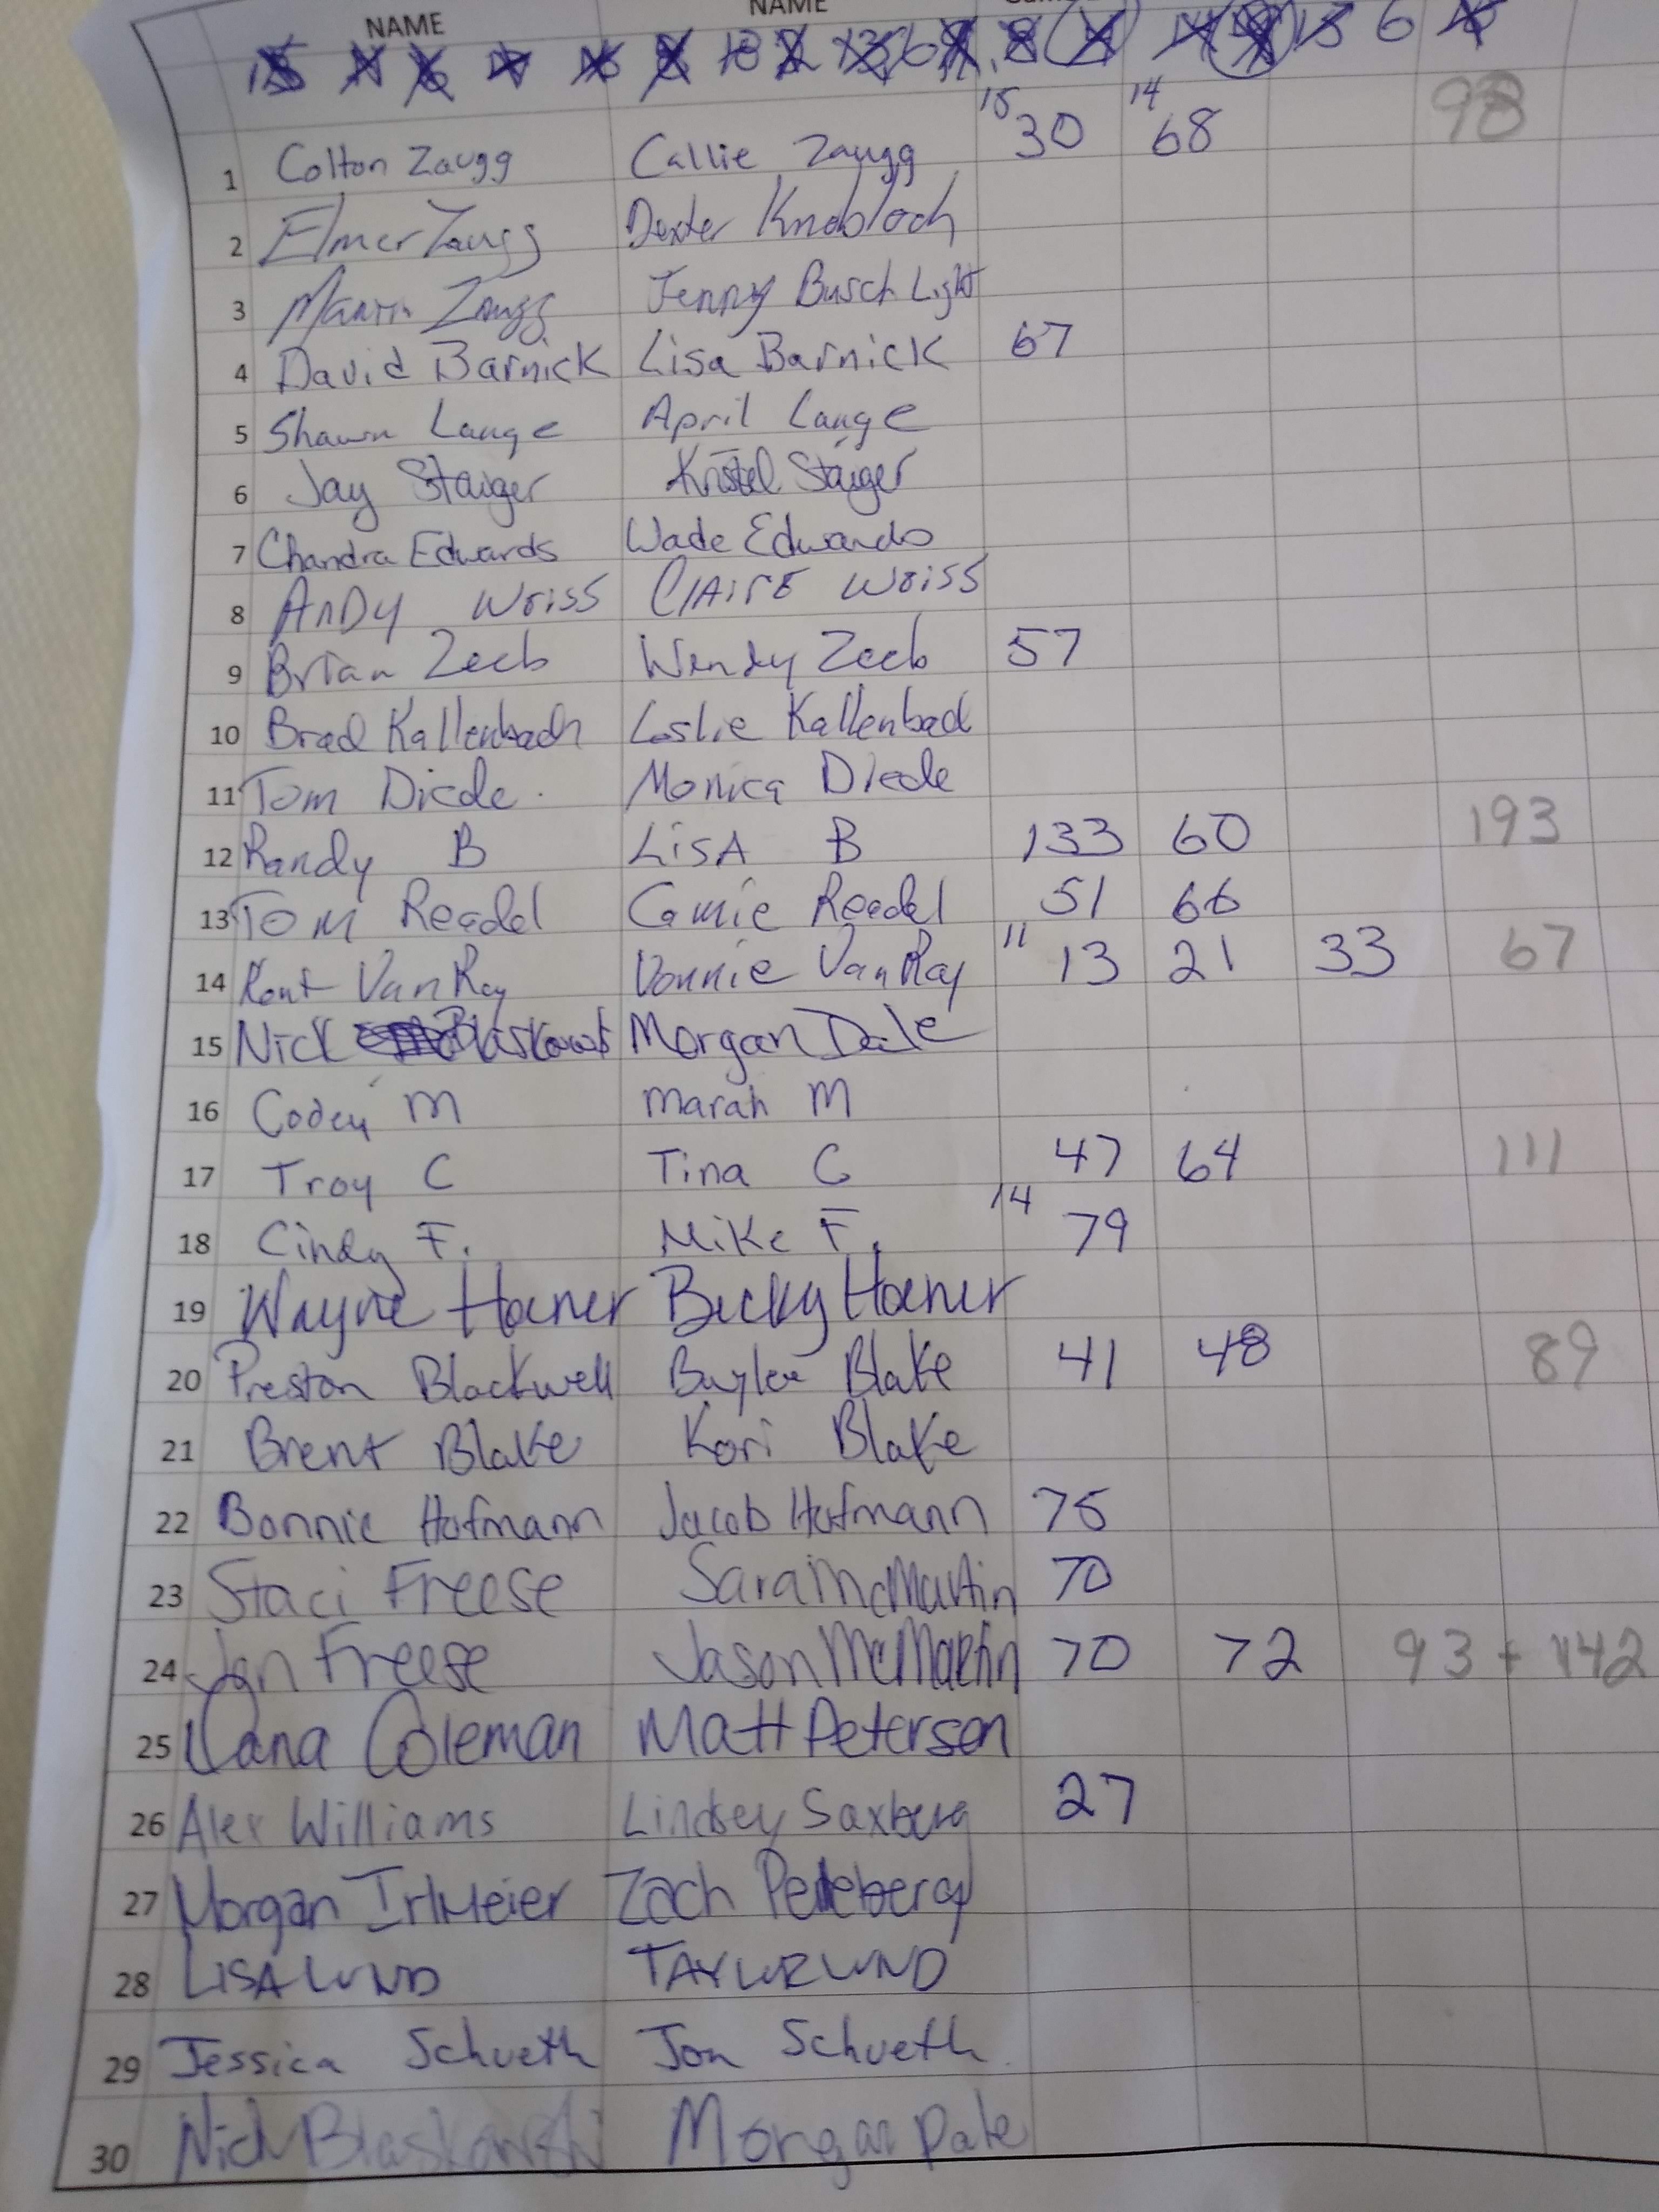 NAME NAME
6
15 14
1 Colton Zaugg Callie Zaugg 30 68 98
2 Elmer Zaugg Dexter Knobloch
3 Martin Zaugg Jenny Busch Light
4 David Barnick Lisa Barnick 67
5 Shawn Lange April Lange
6 Jay Staiger Kristel Staiger
7 Chandra Edwards Wade Edwards
8 ANDY WEISS CLAIRE WEISS
9 Brian Zeeb Wendy Zeeb 57
10 Brad Kallenbach Leslie Kallenbach
11 Tom Diede Monica Diede
12 Randy B LisA B 133 60 193
13 Tom Readel Camie Readel 51 66
11
14 Kent VanRay Vonnie VanRay 13 21 33 67
15 Nick Morgan Dale
16 Codey M Marah M
17 Troy C Tina C 47 64 111
14
18 Cindy F. Mike F. 79
19 Wayne Hoener Becky Hoener
20 Preston Blackwell Baylee Blake 41 48 89
21 Brent Blake Kori Blake
22 Bonnie Hofmann Jacob Hofmann 75
23 Staci Freese Sara McMartin 70
24 Jon Freese Jason McMartin 70 72 93 + 142
25 Dana Coleman Matt Peterson
26 Alex Williams Lindsey Saxberg 27
27 Morgan IrlMeier Zach
28 LISA LUND TAYLOR LUND
29 Jessica Schueth Jon Schueth
30 Nick Blaskowski Morgan Dale